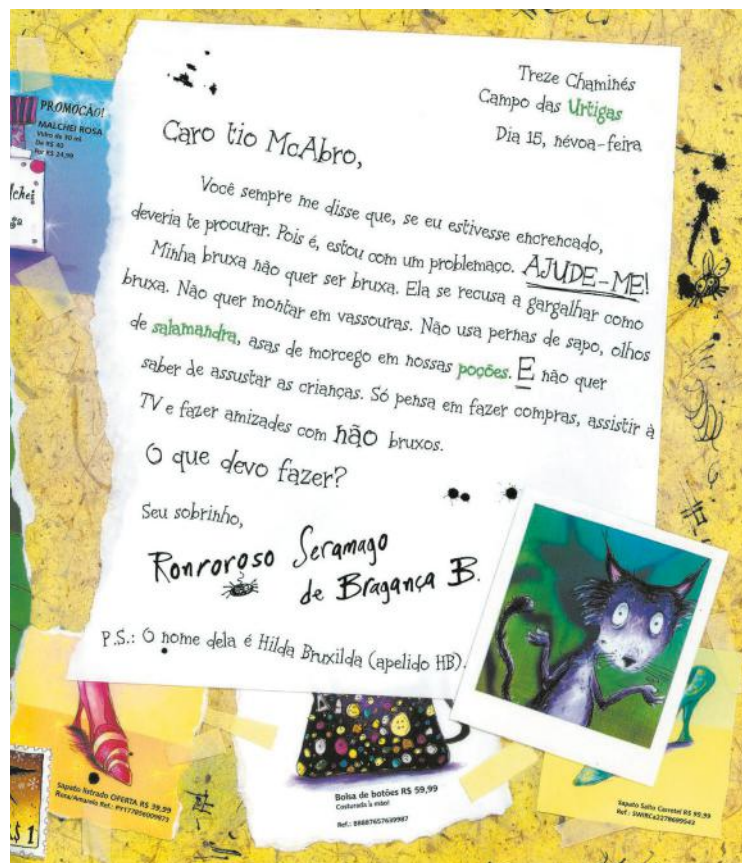 PROMOÇÃO!
MALCHEI ROSA
Vidro de 30 ml
De R$ 40
Por R$ 24,99
Treze Chaminés
Campo das Urtigas
Dia 15, névoa-feira
Caro tio McAbro,
Você sempre me disse que, se eu estivesse encrencado,
deveria te procurar. Pois é, estou com um problemaço. AJUDE-ME!
Minha bruxa não quer ser bruxa. Ela se recusa a gargalhar como
bruxa. Não quer montar em vassouras. Não usa pernas de sapo, olhos
de salamandra, asas de morcego em nossas poções. E não quer
saber de assustar as crianças. Só pensa em fazer compras, assistir à
TV e fazer amizades com não bruxos.
O que devo fazer?
Seu sobrinho,
Ronroroso Seramago
de Bragança B.
P.S.: O nome dela é Hilda Bruxilda (apelido HB).
Sapato listrado OFERTA R$ 39,99
Rosa/Amarelo Ref.: PY177656009873
Bolsa de botões R$ 59,99
Costurada à mão!
Ref.: 88887657639987
Sapato Salto Carretel R$ 95,99
Ref.: SWIRCa2278699543